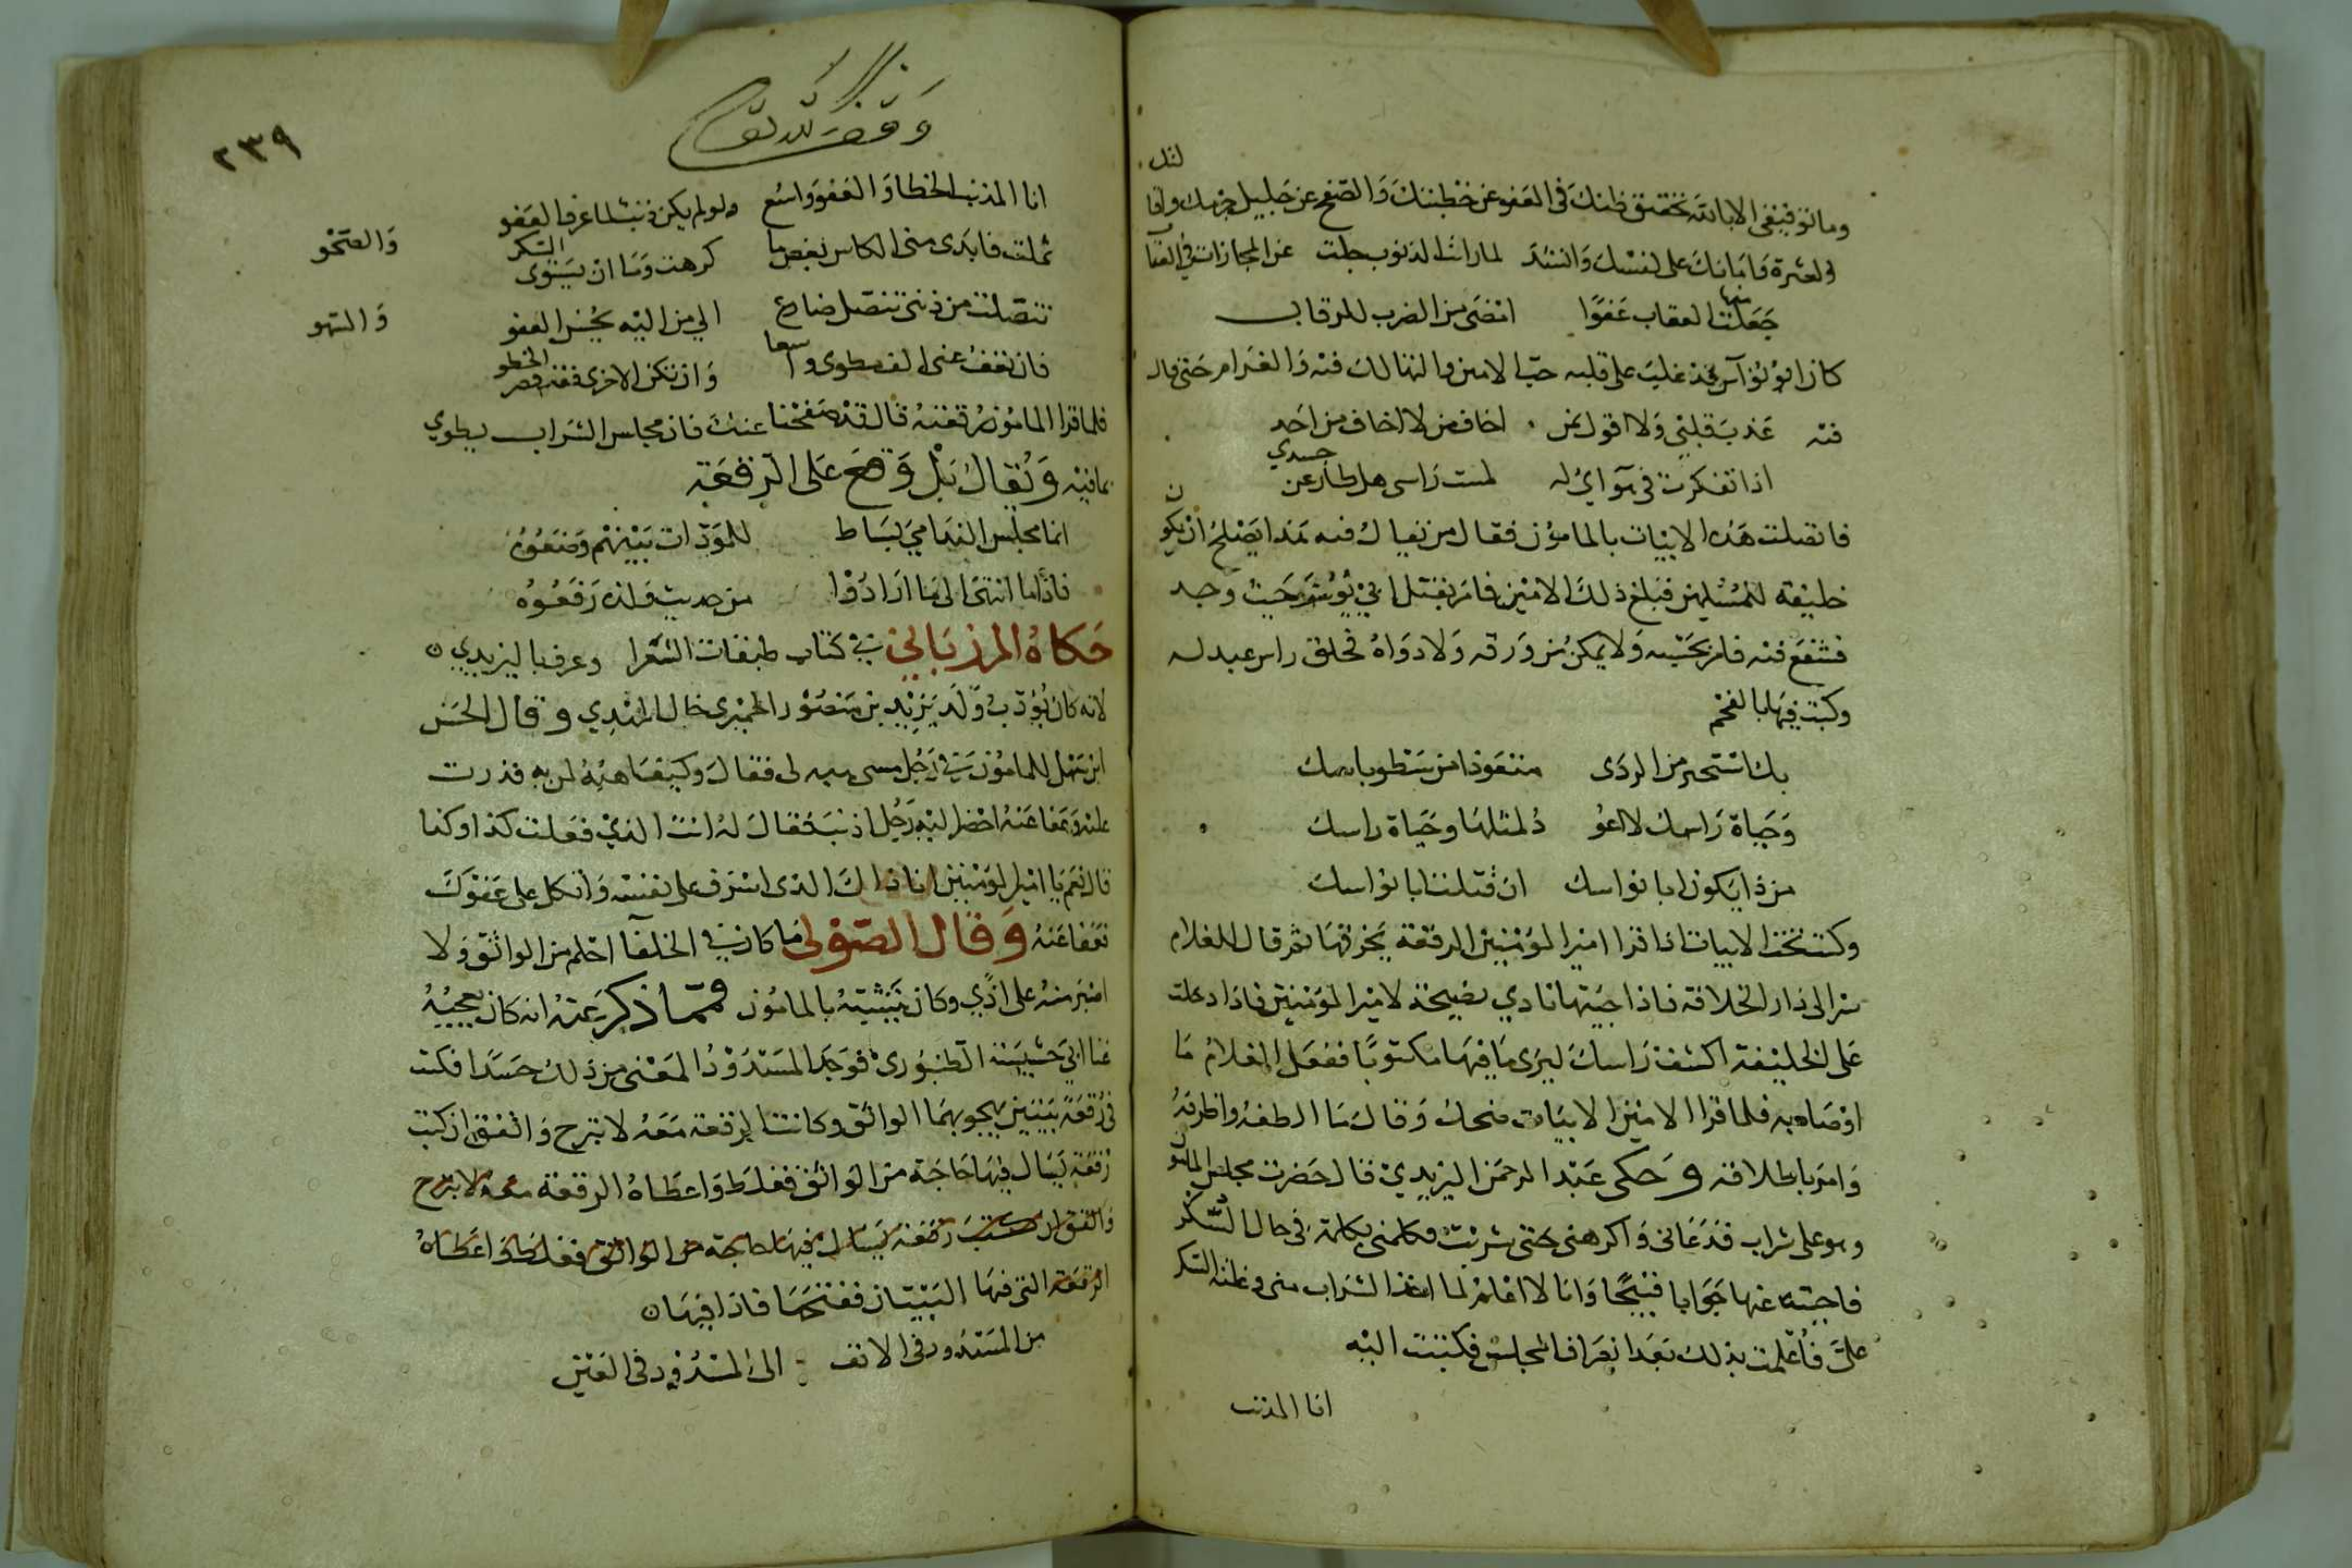 وما توفيقي الا بالله تحقيق ظنك في العفو عن خطيئتك والصفح عن جليل جرمك واقا
لتك
في العثرة وامانك على نفسك وانشد لما رايت الذنوب جلت عن المجازات في العتاب
جعلت فيها العقاب عفوا امضى من الضرب للرقاب
كان ابو نواس قد غلب على قلبه حب الامين والتهالك فيه والغرام حتى قال
فيه عذب قلبي ولا اقول بمن اخاف من لا اخاف من احد
اذا تفكرت في هواي له لمست راسي هل طار عن جسدي
فاتصلت هذه الابيات بالمامون فقال من يقال فيه هذا يصلح ان يكون
خليفة للمسلمين فبلغ ذلك الامين فامر بقتل ابي نواس حيث وجد
فشفع فيه فلم يحبسه ولا يمكن من ورقه ولا دواه فحلق راس عبد له
وكتب فيها بالفحم
بك استجير من الردى متعوذا من سطو باسك
وحياة راسك لا اعو د لمثلها وحياة راسك
من ذا يكون ابا نواسك ان قتلت ابا نواسك
وكتب تحت الابيات اذا قرا امير المومنين الرقعة يخرقها ثم قال للغلام
سر الى دار الخلافة فاذا جيتها نادي نصيحة لامير المومنين فاذا دخلت
على الخليفة اكشف راسك ليرى ما فيها مكتوبا ففعل الغلام ما
اوصاه به فلما قرا الامين الابيات ضحك وقال ما الطفه واظرفه
وامر باطلاقه وحكى عبد الرحمن اليزيدي قال حضرت مجلس المامون
وهو على شراب فدعاني واكرهني حتى شربت فكلمني بكلمة في حال السكر
فاجبته عنها جوابا قبيحا وانا لا اعلم لما اخذ الشراب مني وغلبة السكر
علي فاعلمت بذلك بعد انصراف المجلس فكتبت اليه
انا المذنب
وقف لله تعالى
٢٣٩
انا المذنب الخطا والعفو واسع ولو لم يكن ذنب لما عرف العفو
ثملت فابدى مني الكاس بعض ما كرهت وما ان يستوي السكر والصحو
تنصلت من ذنبي تنصل ضارع الي من اليه يحسن العفو والسهو
فان تعف عني الف خطوى واسعا وان تكن الاخرى فقد قصر الخطو
فلما قرا المامون رقعته قال قد صفحنا عنك فان مجلس الشراب يطوي
بما فيه ويقال بل وقع على الرقعة
انما مجلس الندامي بساط للمودات بينهم وضعوه
فاذا ما انتهى الى ما ارادوا من حديث ولذه رفعوه
حكاه المرزباني في كتاب طبقات الشعرا وعرف باليزيدي
لانه كان يودب ولد يزيد بن منصور الحميري خال المهدي وقال الحسن
ابن سهل للمامون في رجل فقال وكيف اهبه لمن به قدرت
عليه وعفا عنه احضر اليه رجل اذنب فقال له انت الذي فعلت كذا وكذا
قال نعم يا امير المومنين انا ذاك الذى اسرف على نفسه واتكل على عفوك
فعفا عنه وقال الصولي ما كان في الخلفا احلم من الواثق ولا
اصبر منه على اذي وكان يتشبه بالمامون فمما ذكر عنه انه كان يعجبه
غنا ابي حشيشة الطنبوري فوجد المسدود المغني من ذلك حسدا فكتب
في رقعة بيتين يهجو بهما الواثق وكانت الرقعة معه لا تبرح واتفق ان كتب
رقعة يسال فيها حاجة من الواثق فغلط واعطاه الرقعة معه لا تبرح
واتفق ان كتب رقعة يسال فيها حاجة من الواثق فغلط واعطاه
الرقعة التي فيها البيتان ففتحها فاذا فيها
من المسدود في الانف الى المسدود في العين